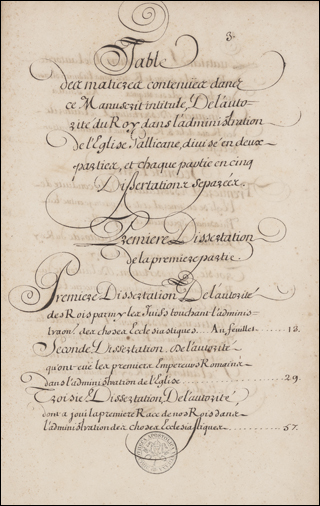 3.
Table
des matieres contenues dans
ce Manuscrit intitulé, De l'auto-
rité du Roy dans l'administration
de l'Eglise Gallicane, divisé en deux
parties, et chaque partie en cinq
Dissertations separées.
Premiere Dissertation
de la premiere partie.
Premiere Dissertation De l'autorité
des Rois parmy les Juifs touchant l'adminis-
traon des choses Ecclesiastiques. Au feuillet 13.
Seconde Dissertation. De l'autorité
qu'ont eüe les premiers Empereurs Romains
dans l'administration de l'Eglise 29.
Troisie. Dissertation, De l'autorité
dont a joui la premiere Race de nos Rois dans
l'administration des choses Ecclesiastiques 57.